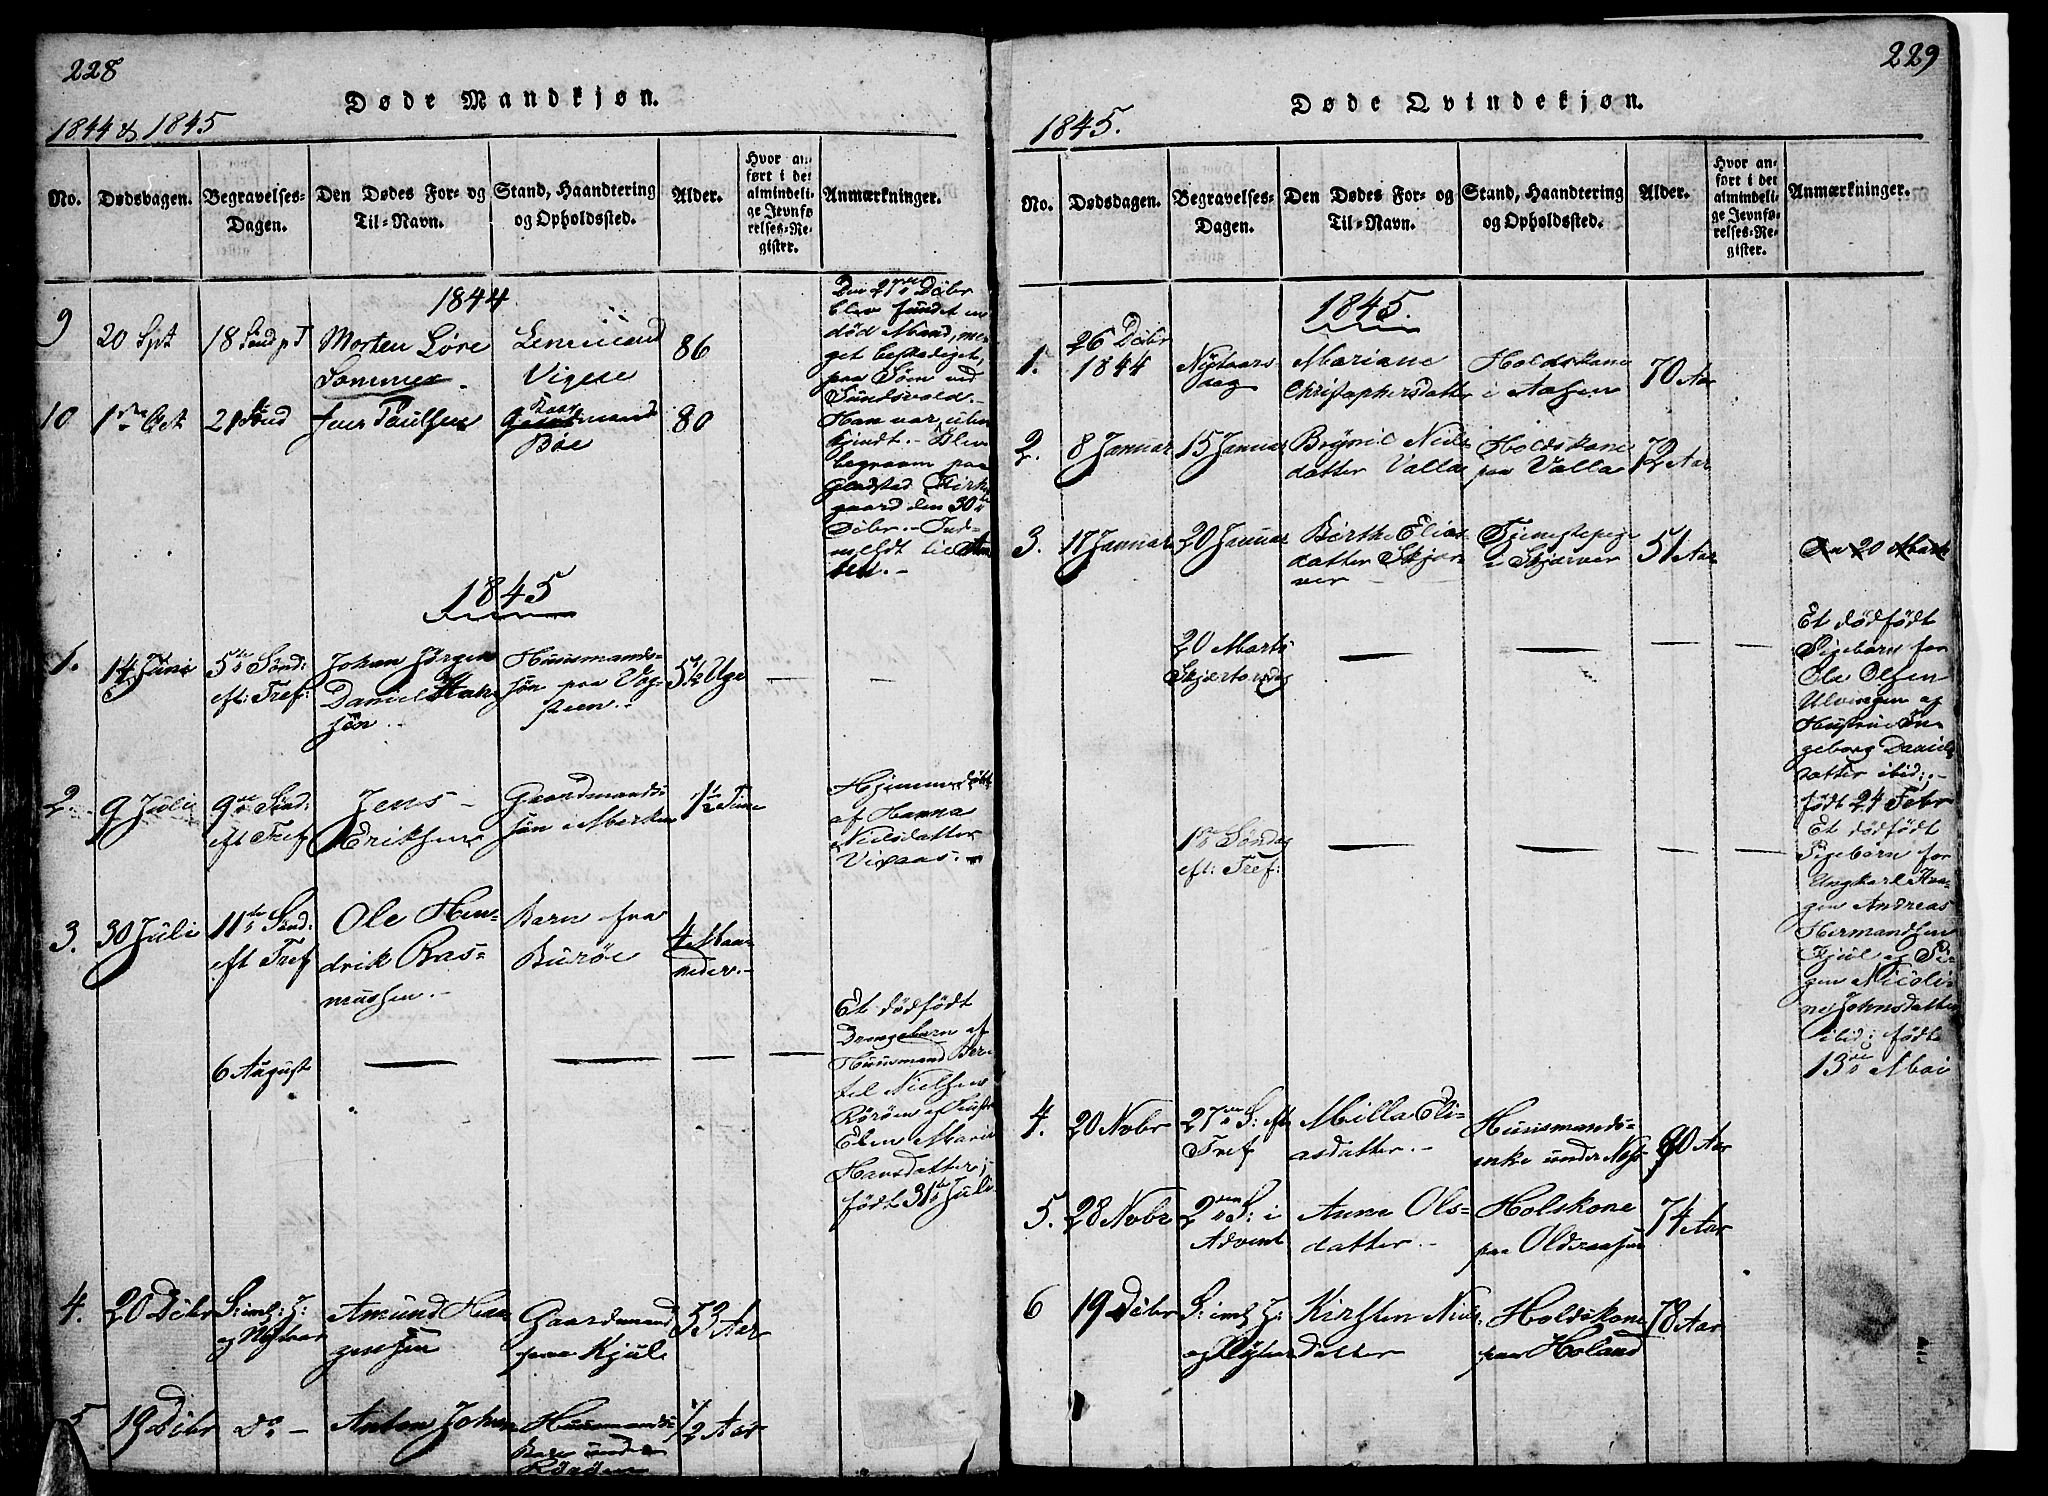 228
Døde Mandkjøn.
1844 & 1845
No.
Dødsdagen.
Begravelses-
Dagen.
Den Dødes For- og
Til-Navn.
Stand, Haandtering
og Opholdssted.
Alder.
Hvor an-
ført i det
almindeli-
ge Jevnfø-
relses-Re-
gister.
Anmærkninger.
1844
9
20 Spt
18 Sønd p T
Morten Søre
Sommer
Lensmand
Vigese
86
Den 21de Debr
blev fundet en
død Mand, me-
get beskadiget,
paa Søm ved
Sundsvold.-
Han var ube-
kjendt.- Blev
begraven paa
Gladstad Kirke
gaard den 30te
Debr.- Ind-
meldt til Am
ten.-
10
1ste Oct
21 Sønd
Iver Paulsen
Kaar
mand
Bøe
80
1845
1.
14 Juni
5te Sønd:
eft: Tref:
Johan Jørgen
Daniel
søn.-
Huusmands-
søn paa Vog-
steen.-
5½ Uge
2.
9 Juli
9de Sønd:
eft Tref
Jens
Eriksen
Gaardmands
søn i Marken
1½ Time
Hjemmedøbt
af Hanna
Nielsdatter
Vigaas.-
3.
30 Juli
11te Sønd:
eft Tref
Ole Hen-
drik Ras-
mussen.-
Barn fra
Burøe
4 Maa-
neder.-
6 August
Et dødfødt
Drengebarn af
Huusmand Ber-
tel Nielsen
Rørøen og Hustr
Elen Marie
Hansdatter,
født 31te Juli
4.
20 Debr
S: iml: J:
og Nytaar
Amund Hee-
gensen
Gaardmand
paa Kjul
53 Aar
5
19 Debr
Do -
Anton Johan
Huusmands
Barn under
Rørøen
½ Aar
229
Døde Qvindekjøn.
1845.
No.
Dødsdagen.
Begravelses-
Dagen.
Den Dødes For- og
Til-Navn.
Stand, Haandtering
og Opholdssted.
Alder.
Hvor an-
ført i det
almindeli-
ge Jevnfø-
relses-Re-
gister.
Anmærkninger.
1845.
1.
26 Debr
1844
Nytaars-
dag
Mariane
Christophersdatter
Holdskone
i Aasen
70 Aar
2.
8 Januar
15 Januar
Brynil Niels
datter Valla
Holdskone
paa Valla
72 Aar
3.
17 Januar
20 Januar
Birthe Elias-
datter Skjær-
ver
Tjenestepige
i Skjærver
51 Aar
Den 20 Marts
20 Marts
Skjærtorsdag
Et dødfødt
Pigebarn for
Ole Olsen
Ulvingen og
Hustrue In-
geborg Daniels
datter ibid:.-
født 24 Febr
1ste Søndag
eft: Tref:
Et dødfødt
Pigebarn for
Ungkarl Haa-
gen Andreas
Hermandsen
Kjul og Pi-
gen Nicoli-
ne Johnsdatter
ibid: født
13de Mai
4.
20 Novbr
27de S: eft
Tref
Milla Eli-
asdatter.-
Huusmands-
enke under
90 Aar
5.
28 Novbr
2den S: i
Advent
Anne Ols-
datter.-
Holskone
paa Olderaasen
74 Aar
6
19 Debr
S: iml J:
og Nytaar
Kirsten Niels-
datter
Holdskone
paa Holand
78 Aar